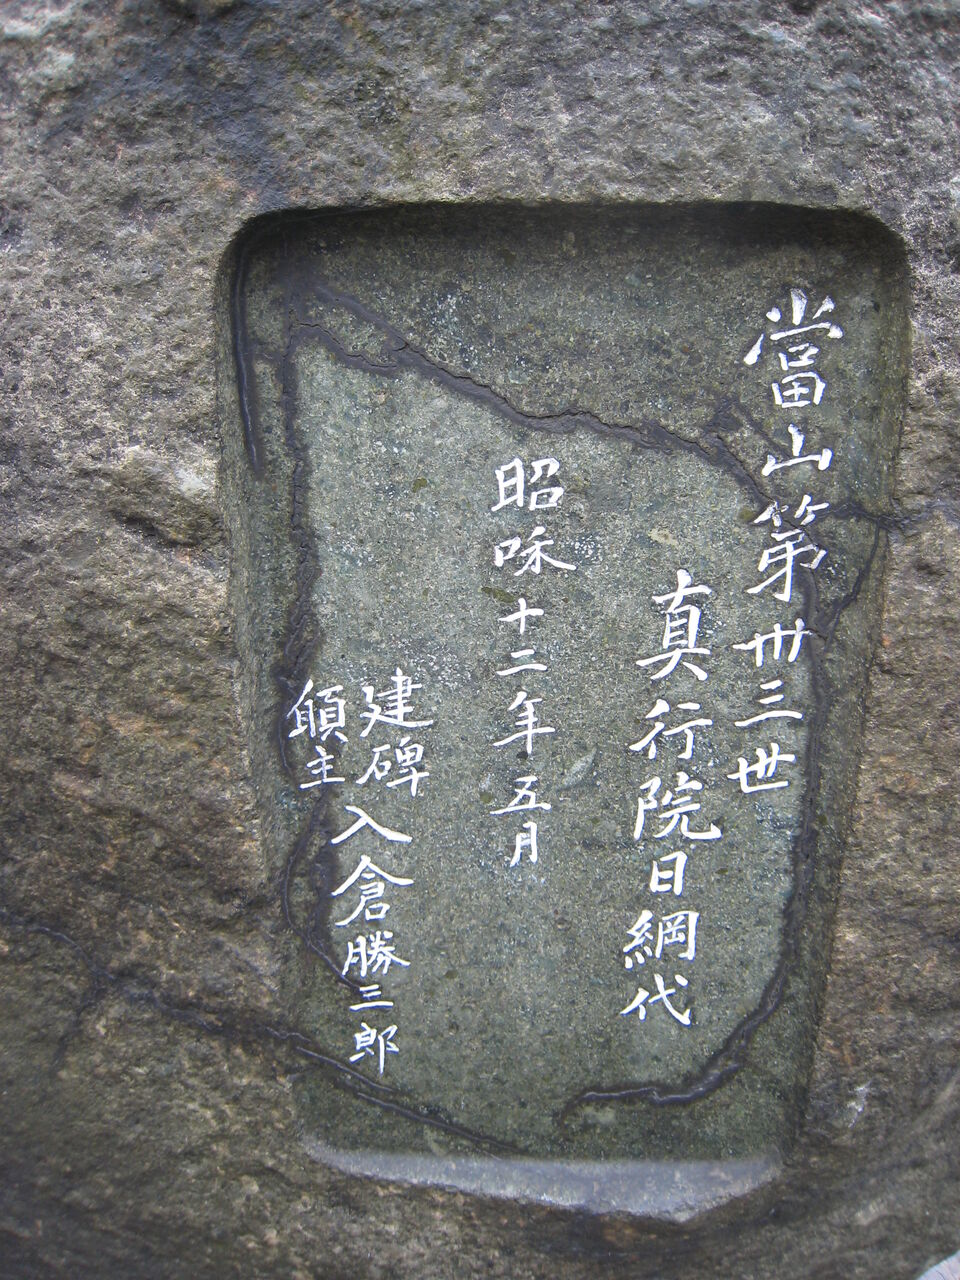 當山第丗三世
真行院日綱代
昭和十二年五月
建碑
願主
入倉勝三郎